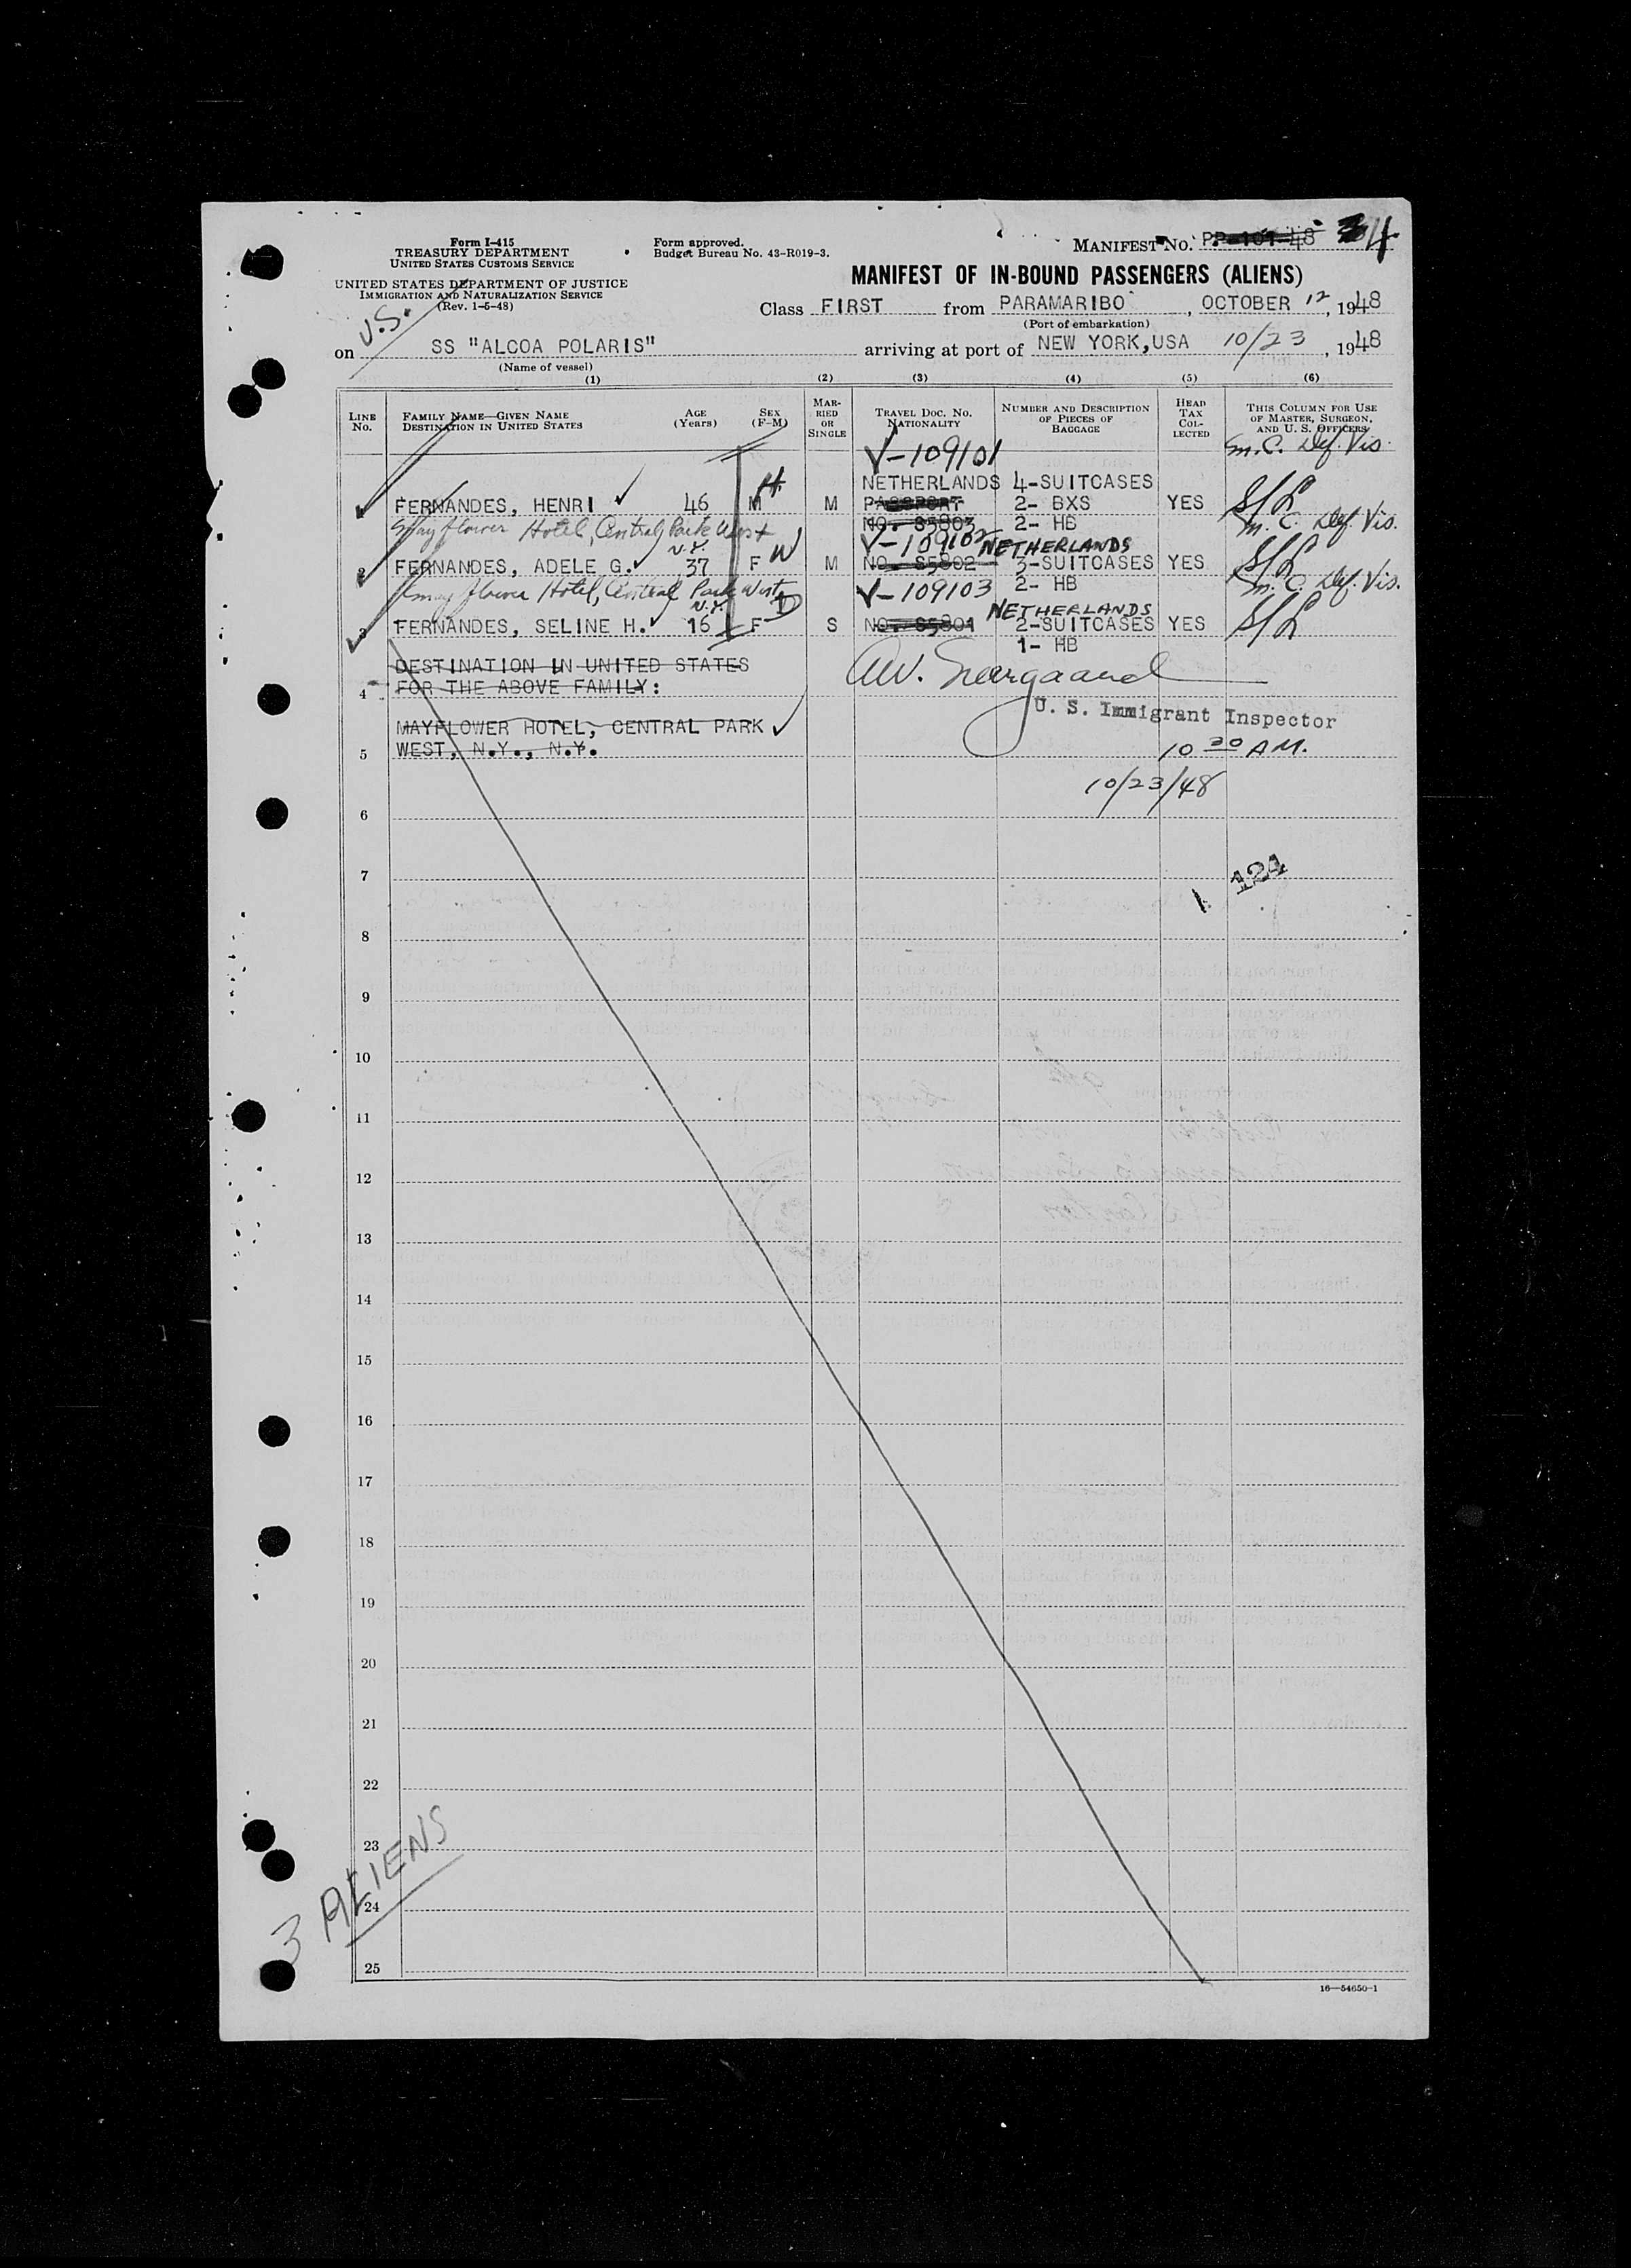 Form I-415
TREASURY DEPARTMENT
UNITED STATES CUSTOMS SERVICE
UNITED STATES DEPARTMENT OF JUSTICE
IMMIGRATION AND NATURALIZATION SERVICE
(Rev. 1-5-48)
Form approved.
Budget Bureau No. 43-R019-3.
MANIFEST No. PP-101-48 34
MANIFEST OF IN-BOUND PASSENGERS (ALIENS)
Class FIRST from PARAMARIBO, OCTOBER 12, 1948
(Port of embarkation)
U.S.
on SS "ALCOA POLARIS" arriving at port of NEW YORK,USA 10/23, 1948
(Name of vessel)
(1) (2) (3) (4) (5) (6)
LINE No.
FAMILY NAME—GIVEN NAME
DESTINATION IN UNITED STATES
AGE (Years)
SEX (F-M)
MARRIED OR SINGLE
TRAVEL DOC. NO.
NATIONALITY
NUMBER AND DESCRIPTION OF PIECES OF BAGGAGE
HEAD TAX COLLECTED
THIS COLUMN FOR USE OF MASTER, SURGEON, AND U. S. OFFICERS
V-109101 m.C. Def. Vis.
NETHERLANDS 4-SUITCASES
FERNANDES, HENRI 46 M H. M PASSPORT 2- BXS YES S/L
Mayflower Hotel, Central Park West NO. 85803 2- HB m.C. Def. Vis.
N.Y. V-109102 NETHERLANDS
2 FERNANDES, ADELE G. 37 F W M NO. 85802 3-SUITCASES YES S/L
Mayflower Hotel, Central Park West V-109103 2- HB m.C. Def. Vis.
N.Y. D NETHERLANDS
3 FERNANDES, SELINE H. 16 F S NO. 85801 2-SUITCASES YES S/L
1- HB
DESTINATION IN UNITED STATES
4 FOR THE ABOVE FAMILY:
U. S. Immigrant Inspector
MAYFLOWER HOTEL, CENTRAL PARK
5 WEST, N.Y., N.Y.
10 30 AM.
10/23/48
6
7
124
8
9
10
11
12
13
14
15
16
17
18
19
20
21
22
23
24
25
3 ALIENS
16—54650-1